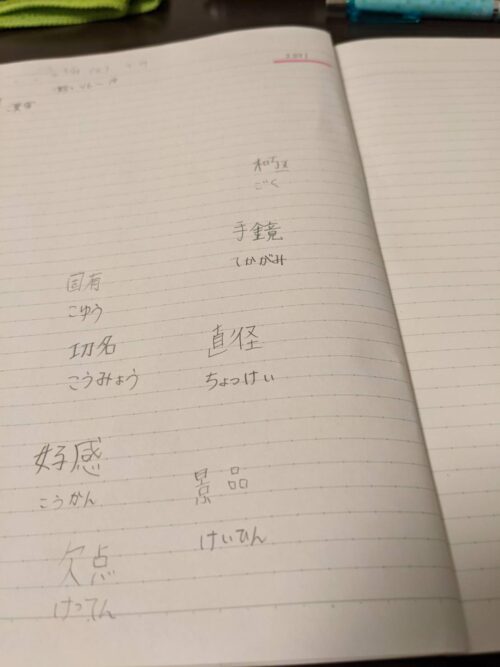 手鏡
てかがみ
固有
こゆう
功名
こうみょう
直径
ちょっけい
好感
こうかん
景品
けいひん
欠点
けってん